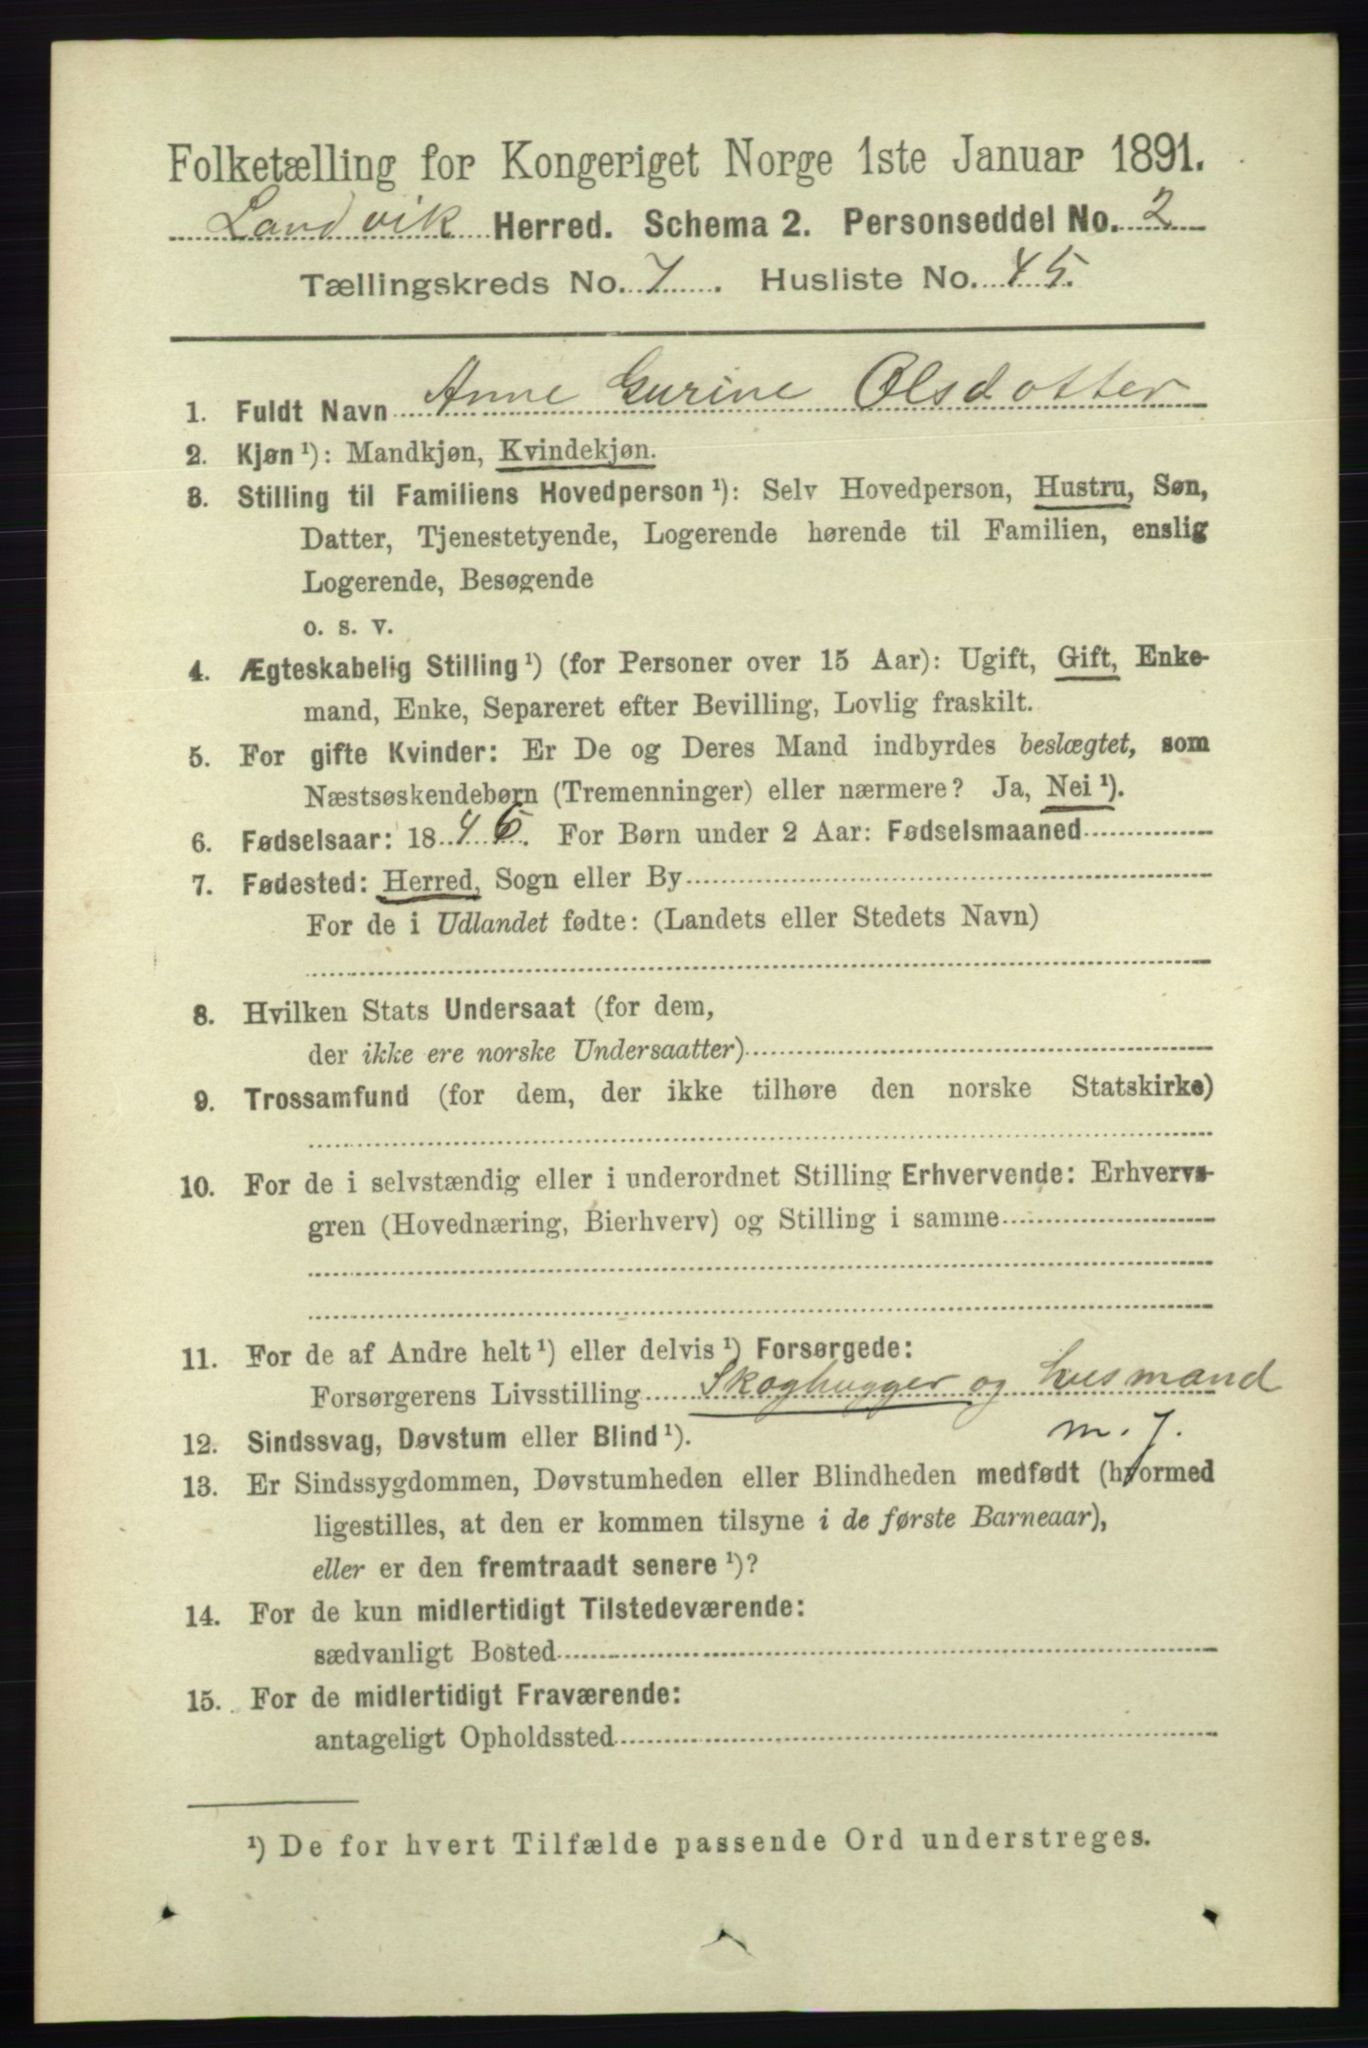 Folketælling for Kongeriget Norge 1ste Januar 1891.
Landvik Herred. Schema 2. Personseddel No. 2
Tællingskreds No. 7. Husliste No. 45.
1. Fuldt Navn Anne Gurine Olsdotter
2. Kjøn ¹): Mandkjøn, Kvindekjøn.
3. Stilling til Familiens Hovedperson ¹): Selv Hovedperson, Hustru, Søn,
Datter, Tjenestetyende, Logerende hørende til Familien, enslig
Logerende, Besøgende
o. s. v.
4. Ægteskabelig Stilling ¹) (for Personer over 15 Aar): Ugift, Gift, Enke-
mand, Enke, Separeret efter Bevilling, Lovlig fraskilt.
5. For gifte Kvinder: Er De og Deres Mand indbyrdes beslægtet, som
Næstsøskendebørn (Tremenninger) eller nærmere? Ja, Nei ¹).
6. Fødselsaar: 1845. For Børn under 2 Aar: Fødselsmaaned
7. Fødested: Herred, Sogn eller By
For de i Udlandet fødte: (Landets eller Stedets Navn)
8. Hvilken Stats Undersaat (for dem,
der ikke ere norske Undersaatter)
9. Trossamfund (for dem, der ikke tilhøre den norske Statskirke)
10. For de i selvstændig eller i underordnet Stilling Erhvervende: Erhvervs-
gren (Hovednæring, Bierhverv) og Stilling i samme
11. For de af Andre helt ¹) eller delvis ¹) Forsørgede:
Forsørgerens Livsstilling Skoghugger og husmand
12. Sindssvag, Døvstum eller Blind ¹). m. j.
13. Er Sindssygdommen, Døvstumheden eller Blindheden medfødt (hvormed
ligestilles, at den er kommen tilsyne i de første Barneaar),
eller er den fremtraadt senere ¹)?
14. For de kun midlertidigt Tilstedeværende:
sædvanligt Bosted
15. For de midlertidigt Fraværende:
antageligt Opholdssted
¹) De for hvert Tilfælde passende Ord understreges.